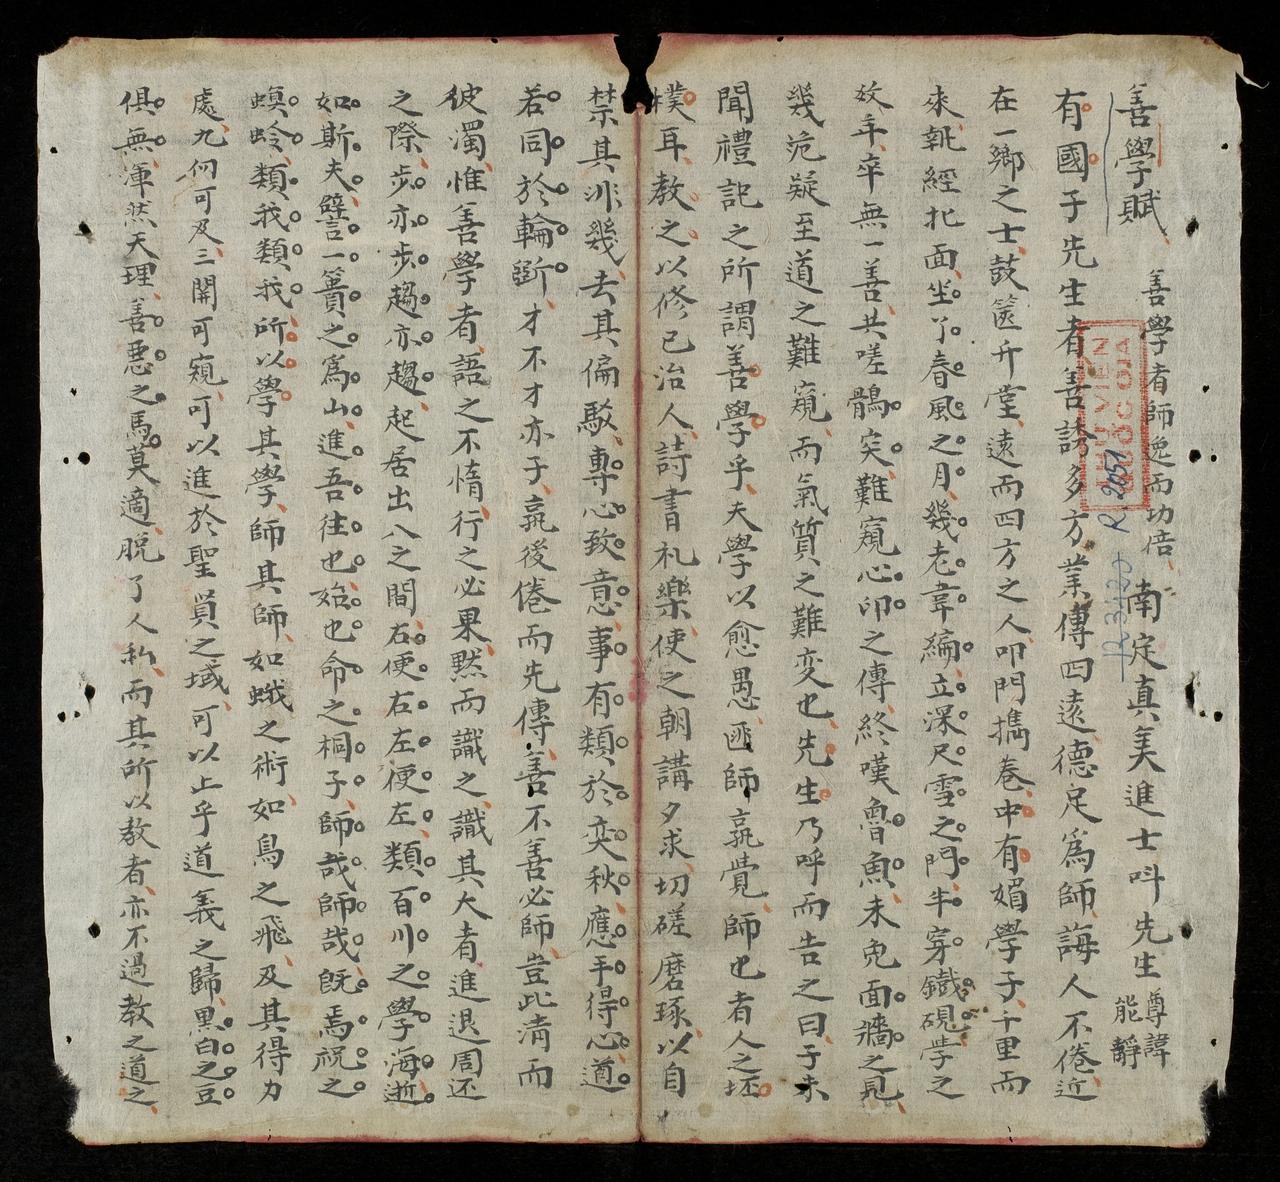 善學賦 善學者師逸而功倍 南定真美進士呌先生 尊諱能靜
有國子先生者善誘多方業傳四遠德足爲師誨人不倦近
在一鄉之士鼓篋升堂遠而四方之人叩門擕卷中有媚學子千里而
來執經北面坐了春風之月幾老韋編立深尺雪之門半穿鐵硯學之
效年卒無一善共嗟鶻突難窺心印之傳終嘆魯魚未免面牆之見
幾范疑至道之難窺而氣質之難变也先生乃呼而告之曰子未
聞禮記之所謂善學乎夫學以愈愚匪師孰覺師也者人之坯
樸耳教之以修已治人詩書礼樂使之朝講夕求切磋磨琢以自
禁其非幾去其偏駁專心致意事有類於奕秋應手得心道
若同於輪斵才不才亦子孰後倦而先傳善不善必師豈此清而
彼濁惟善學者語之不惰行之必果黙而識之識其大者進退周还
之際步亦步趨亦趨起居出入之間右便右左便左類百川之學海逝
如斯夫譬一簣之爲山進吾往也始也命之桐子師哉師哉既焉祝之
螟蛉類我類我所以學其學師其師如蛾之術如鳥之飛及其得力
處九仞可及三開可窺可以進於聖貟之域可以上乎道義之歸黑白之豆
俱無渾然天理善悪之馬莫適脱了人私而其所以教者亦不過教之道之
THU VIEN
QUOC GIA
R.2051
R.3123